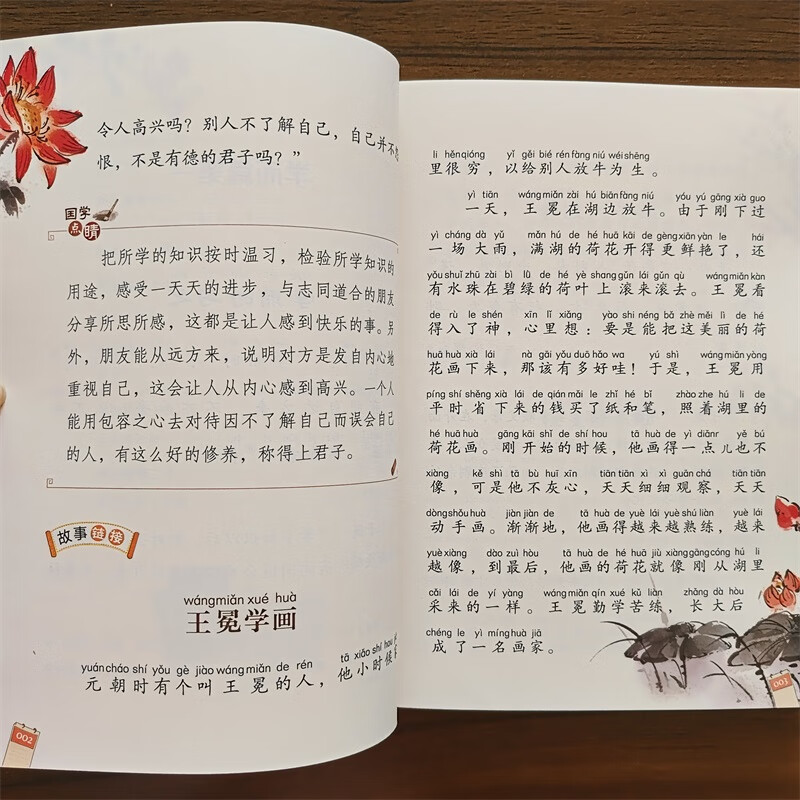 令人高兴吗？别人不了解自己，自己并不
恨，不是有德的君子吗？”
国学
点睛
把所学的知识按时温习，检验所学知识的
用途，感受一天天的进步，与志同道合的朋友
分享所思所感，这都是让人感到快乐的事。另
外，朋友能从远方来，说明对方是发自内心地
重视自己，这会让人从内心感到高兴。一个人
能用包容之心去对待因不了解自己而误会自己
的人，有这么好的修养，称得上君子。
故事链接
wángmiǎn xué huà
王冕学画
yuáncháo shí yǒu gè jiào wángmiǎn de rén tā xiǎo shí hou
元朝时有个叫王冕的人，他小时候
002
li hěnqióng yǐ gěi bié rén fàng niú wéi shēng
里很穷，以给别人放牛为生。
yì tiān wángmiǎn zài hú biān fàng niú yóu yú gāng xià guo
一天，王冕在湖边放牛。由于刚下过
yì cháng dà yǔ mǎn hú de hé huā kāi de gèng xiān yàn le hái
一场大雨，满湖的荷花开得更鲜艳了，还
yǒu shuǐ zhū zài bì lǜ de hé yè shang gǔn lái gǔn qù wángmiǎn kàn
有水珠在碧绿的荷叶上滚来滚去。王冕看
de rù le shén xīn lǐ xiǎng yào shi néng bǎ zhè měi lì de hé
得入了神，心里想：要是能把这美丽的荷
huā huà xià lái nà gāi yǒu duō hǎo wa yú shì wángmiǎn yòng
花画下来，那该有多好哇！于是，王冕用
píng shí shěng xià lái de qián mǎi le zhǐ hé bǐ zhào zhe hú li de
平时省下来的钱买了纸和笔，照着湖里的
hé huā huà gāng kāi shǐ de shí hou tā huà de yì diǎnr yě bú
荷花画。刚开始的时候，他画得一点儿也不
xiàng kě shì tā bù huī xīn tiān tiān xì xì guān chá tiān tiān
像，可是他不灰心，天天细细观察，天天
dòng shǒu huà jiàn jiàn de tā huà de yuè lái yuè shú liàn yuè lái
动手画。渐渐地，他画得越来越熟练，越来
yuè xiàng dào zuì hòu tā huà de hé huā jiù xiàng gāng cóng hú li
越像，到最后，他画的荷花就像刚从湖里
cǎi lái de yí yàng wángmiǎn qín xué kǔ liàn zhǎng dà hòu
采来的一样。王冕勤学苦练，长大后
chéng le yì míng huà jiā
成了一名画家。
003